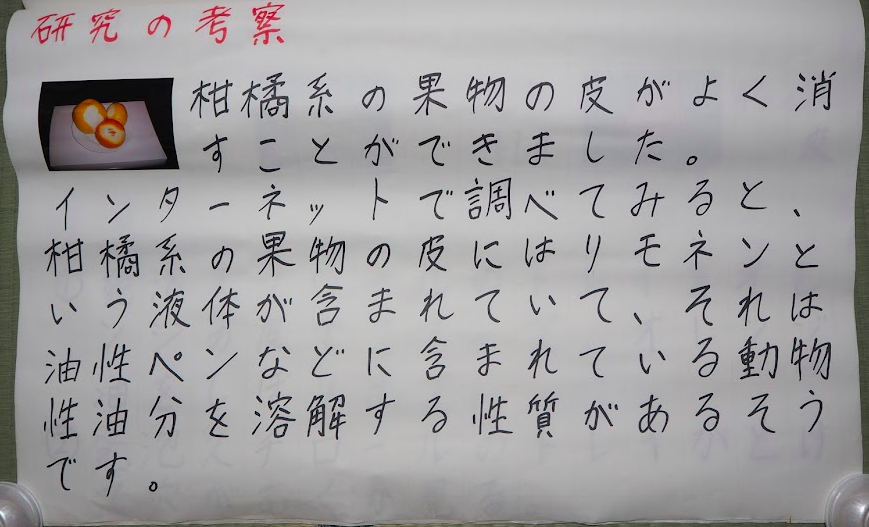 研究の考察
柑橘系の果物の皮がよく消
すことができました。
インターネットで調べてみると、
柑橘系の果物の皮にはリモネンと
いう液体が含まれていて、それは
油性ペンなどに含まれている動物
性油分を溶解する性質があるそう
です。